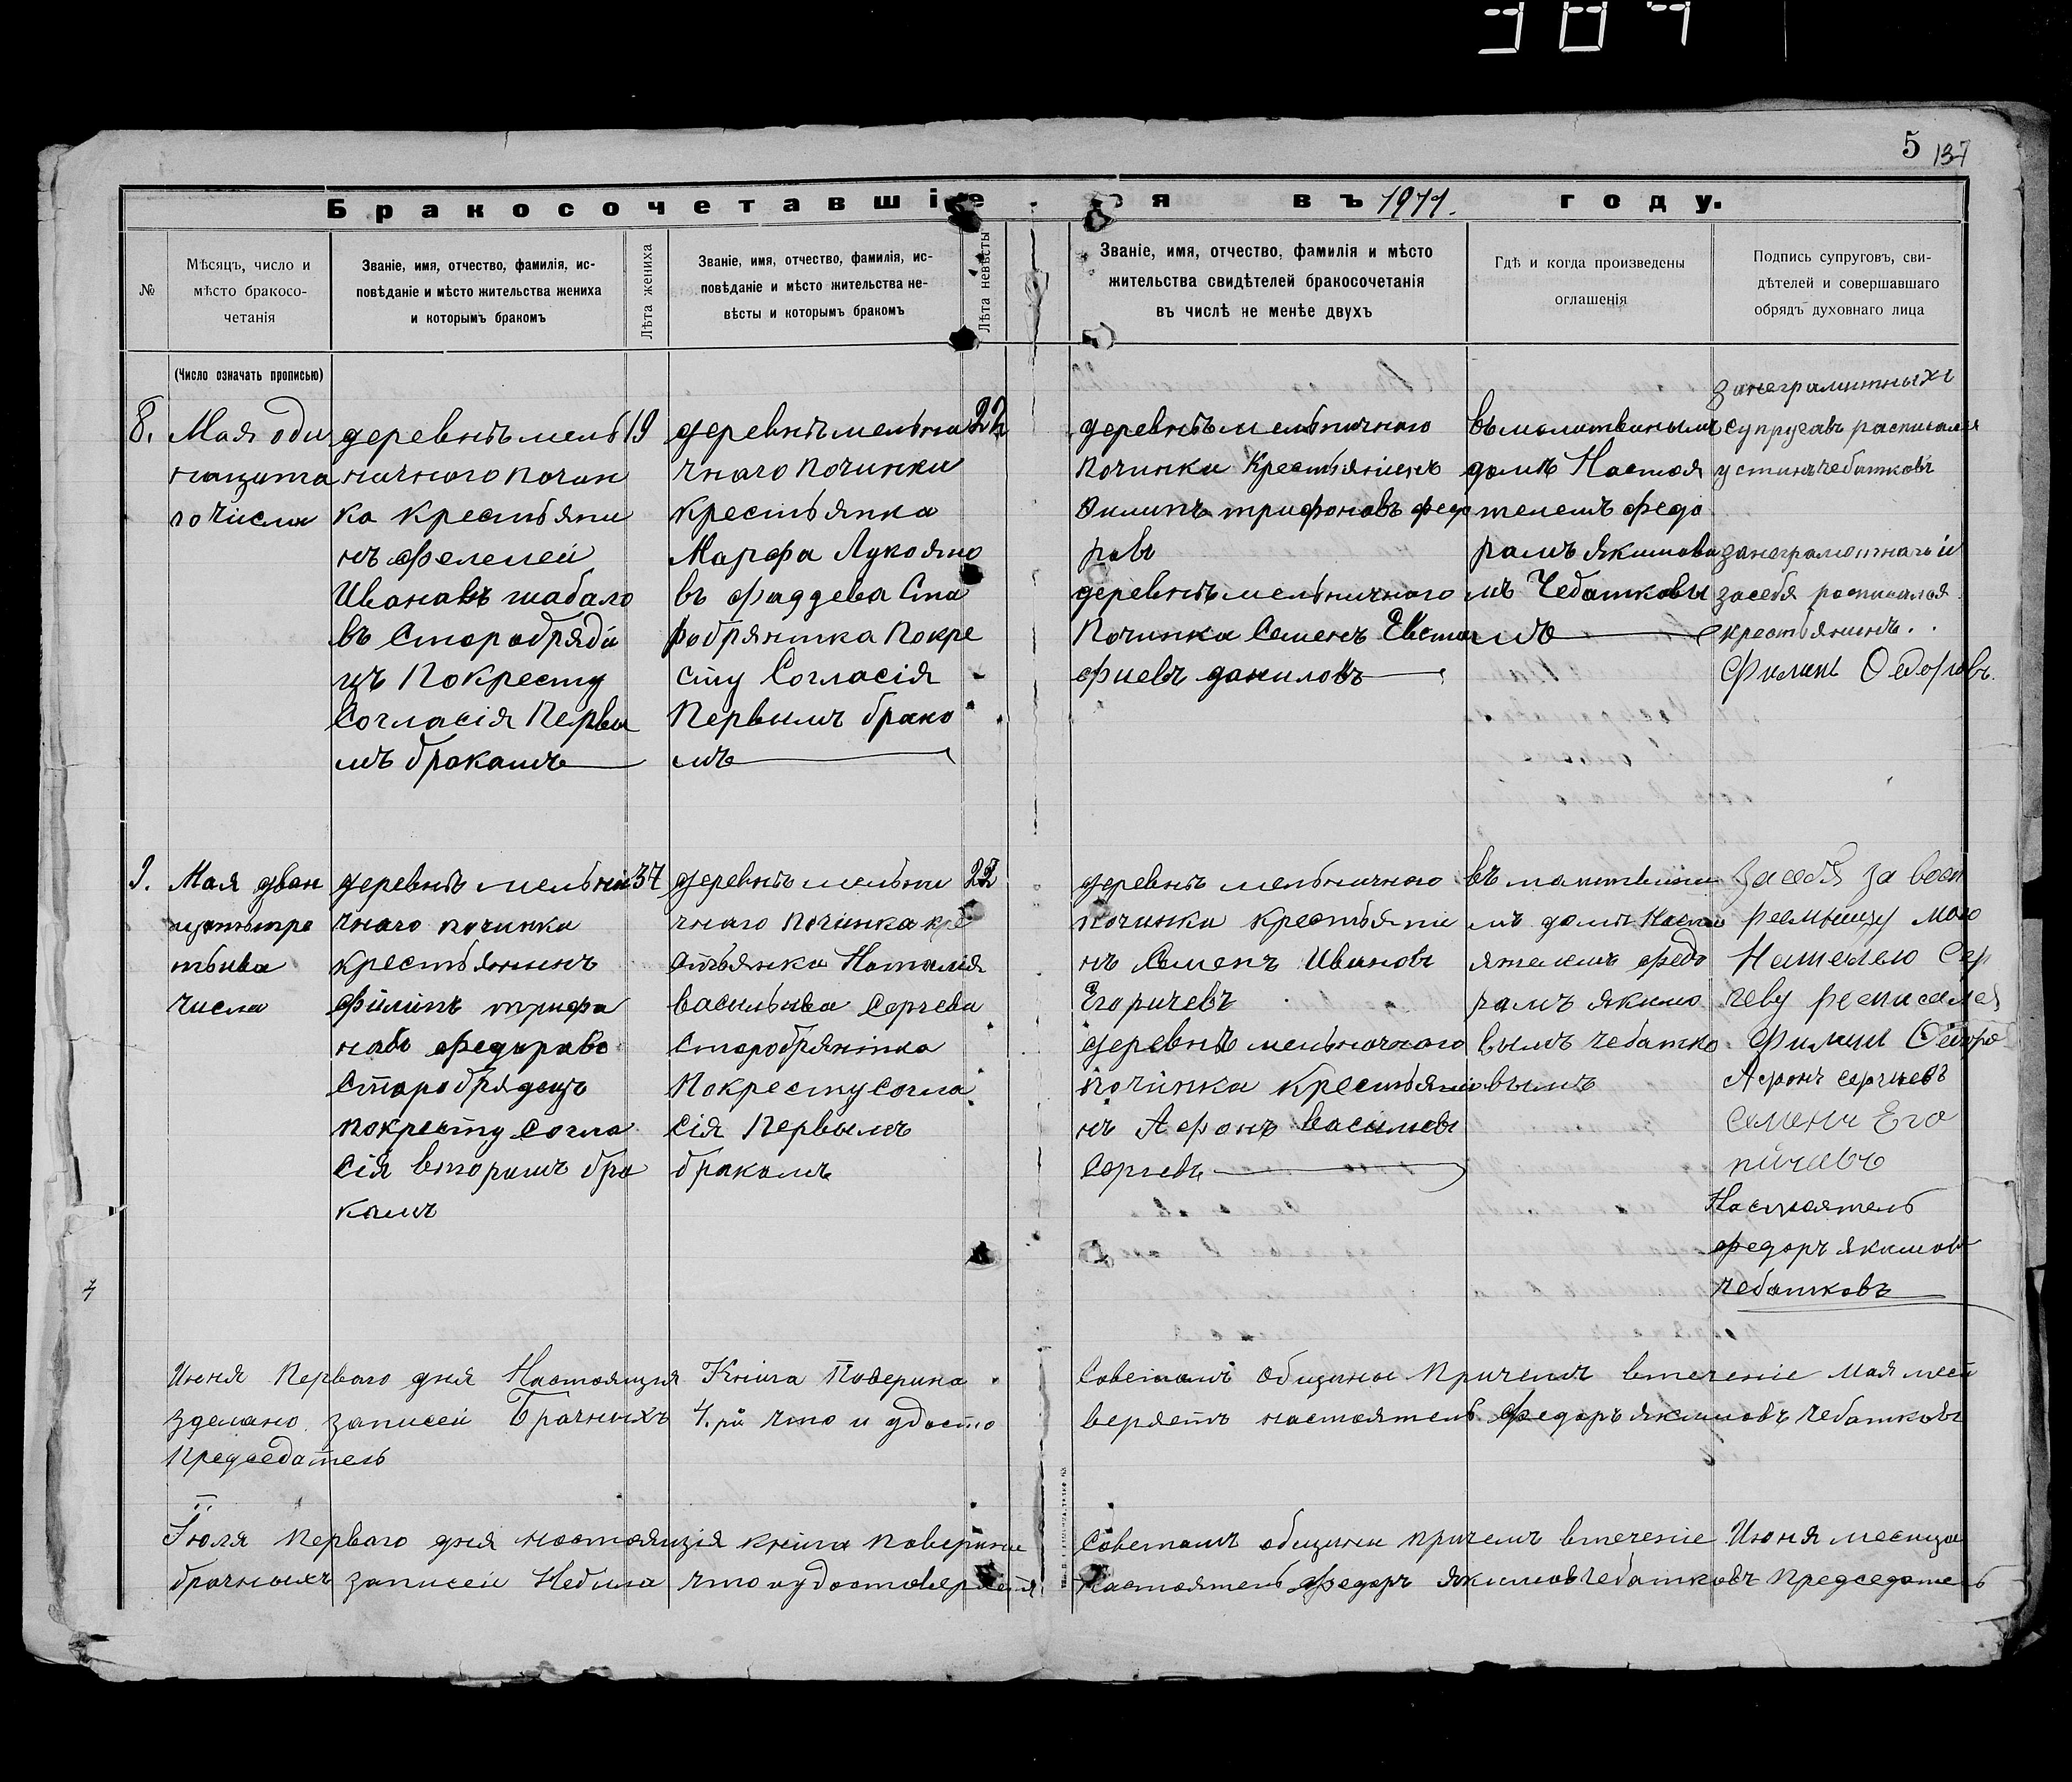 5 137
Бракосочетавшіеся въ 1911. году.
№
Мѣсяцъ, число и
мѣсто бракосо-
четанія
Званіе, имя, отчество, фамилія, ис-
повѣданіе и мѣсто жительства жениха
и которымъ бракомъ
Лѣта жениха
Званіе, имя, отчество, фамилія, ис-
повѣданіе и мѣсто жительства не-
вѣсты и которымъ бракомъ
Лѣта невѣсты
Званіе, имя, отчество, фамилія и мѣсто
жительства свидѣтелей бракосочетанія
въ числѣ не менѣе двухъ
Гдѣ и когда произведены
оглашенія
Подпись супруговъ, сви-
дѣтелей и совершавшаго
обрядъ духовнаго лица
(Число означать прописью)
8.
Мая оди
нацата
го числа
деревнѣ мель
ничного почин
ка крестьяни
нъ фелелей
Ивановъ шабало
въ Старобряди
цъ Покресту
Согласія Первы
мъ бракамъ
19
деревнѣ мельни
чнаго починки
крестьянка
Марфа Лукояно
въ фаддева Ста
робрянтка Покре
сту Согласія
Первымъ брако
мъ
22
деревнѣ мельничного
починки Крестьянинъ
Филипъ трифоновъ федо
ровъ
деревнѣ мельничного
Починка Семенъ Евста
фиевъ даниловъ
въ молитвинымъ
домѣ Настоя
телемъ федо
рамъ якимовы
мъ Чебатковы
мъ
занеграмитныхъ
супругавъ расписался
устинъ чебатковъ
занеграмотнай и
засебя росписался
крестьянинъ.
Филипъ Федоровъ.
9.
Мая дван
цатьтре
тьива
числа
деревнѣ мельни
чнаго починки
крестьянинъ
Филипъ трифа
навъ федоравъ
Старобрядецъ
покресту согла
сія вторымъ бра
камъ
37
деревнѣ мельни
чнаго починка кре
стьянка Наталия
васильива Сергева
Старобрянтка
Покресту согла
сія Первымъ
бракамъ
22
деревнѣ мельничного
починки крестьяни
нъ Семенъ Ивановъ
Егоричевъ
деревнѣ мельничного
починка Крестьяни
нъ Афонъ Васильевъ
Сергевъ
въ молитвины
мъ домѣ Насто
ятелимъ федо
рамъ якимо
вымъ чебатко
вымъ
засебя за
мою
Наталею Сер
геву росписалса
Филип Федоро
Афонъ сергиевъ
семенъ Его
ричевъ
Настоятель
федоръ якимовъ
чебатковъ
Июня Перваго дня Настоящия Книга Поверина Советамъ Общины Причемъ втечение Мая месе
зделано записей Брачныхъ 4.ри что и удосто веряетъ настоятель Федоръ якимовъ Чебатковъ
Председатель
Июля Перваго дня настоящия книга поверина Советамъ общины причемъ втечение Июня месица
брачныхъ записей Небыла что иудостоверяетъ Настоятель Федоръ якимовъ Чебатковъ Председатель